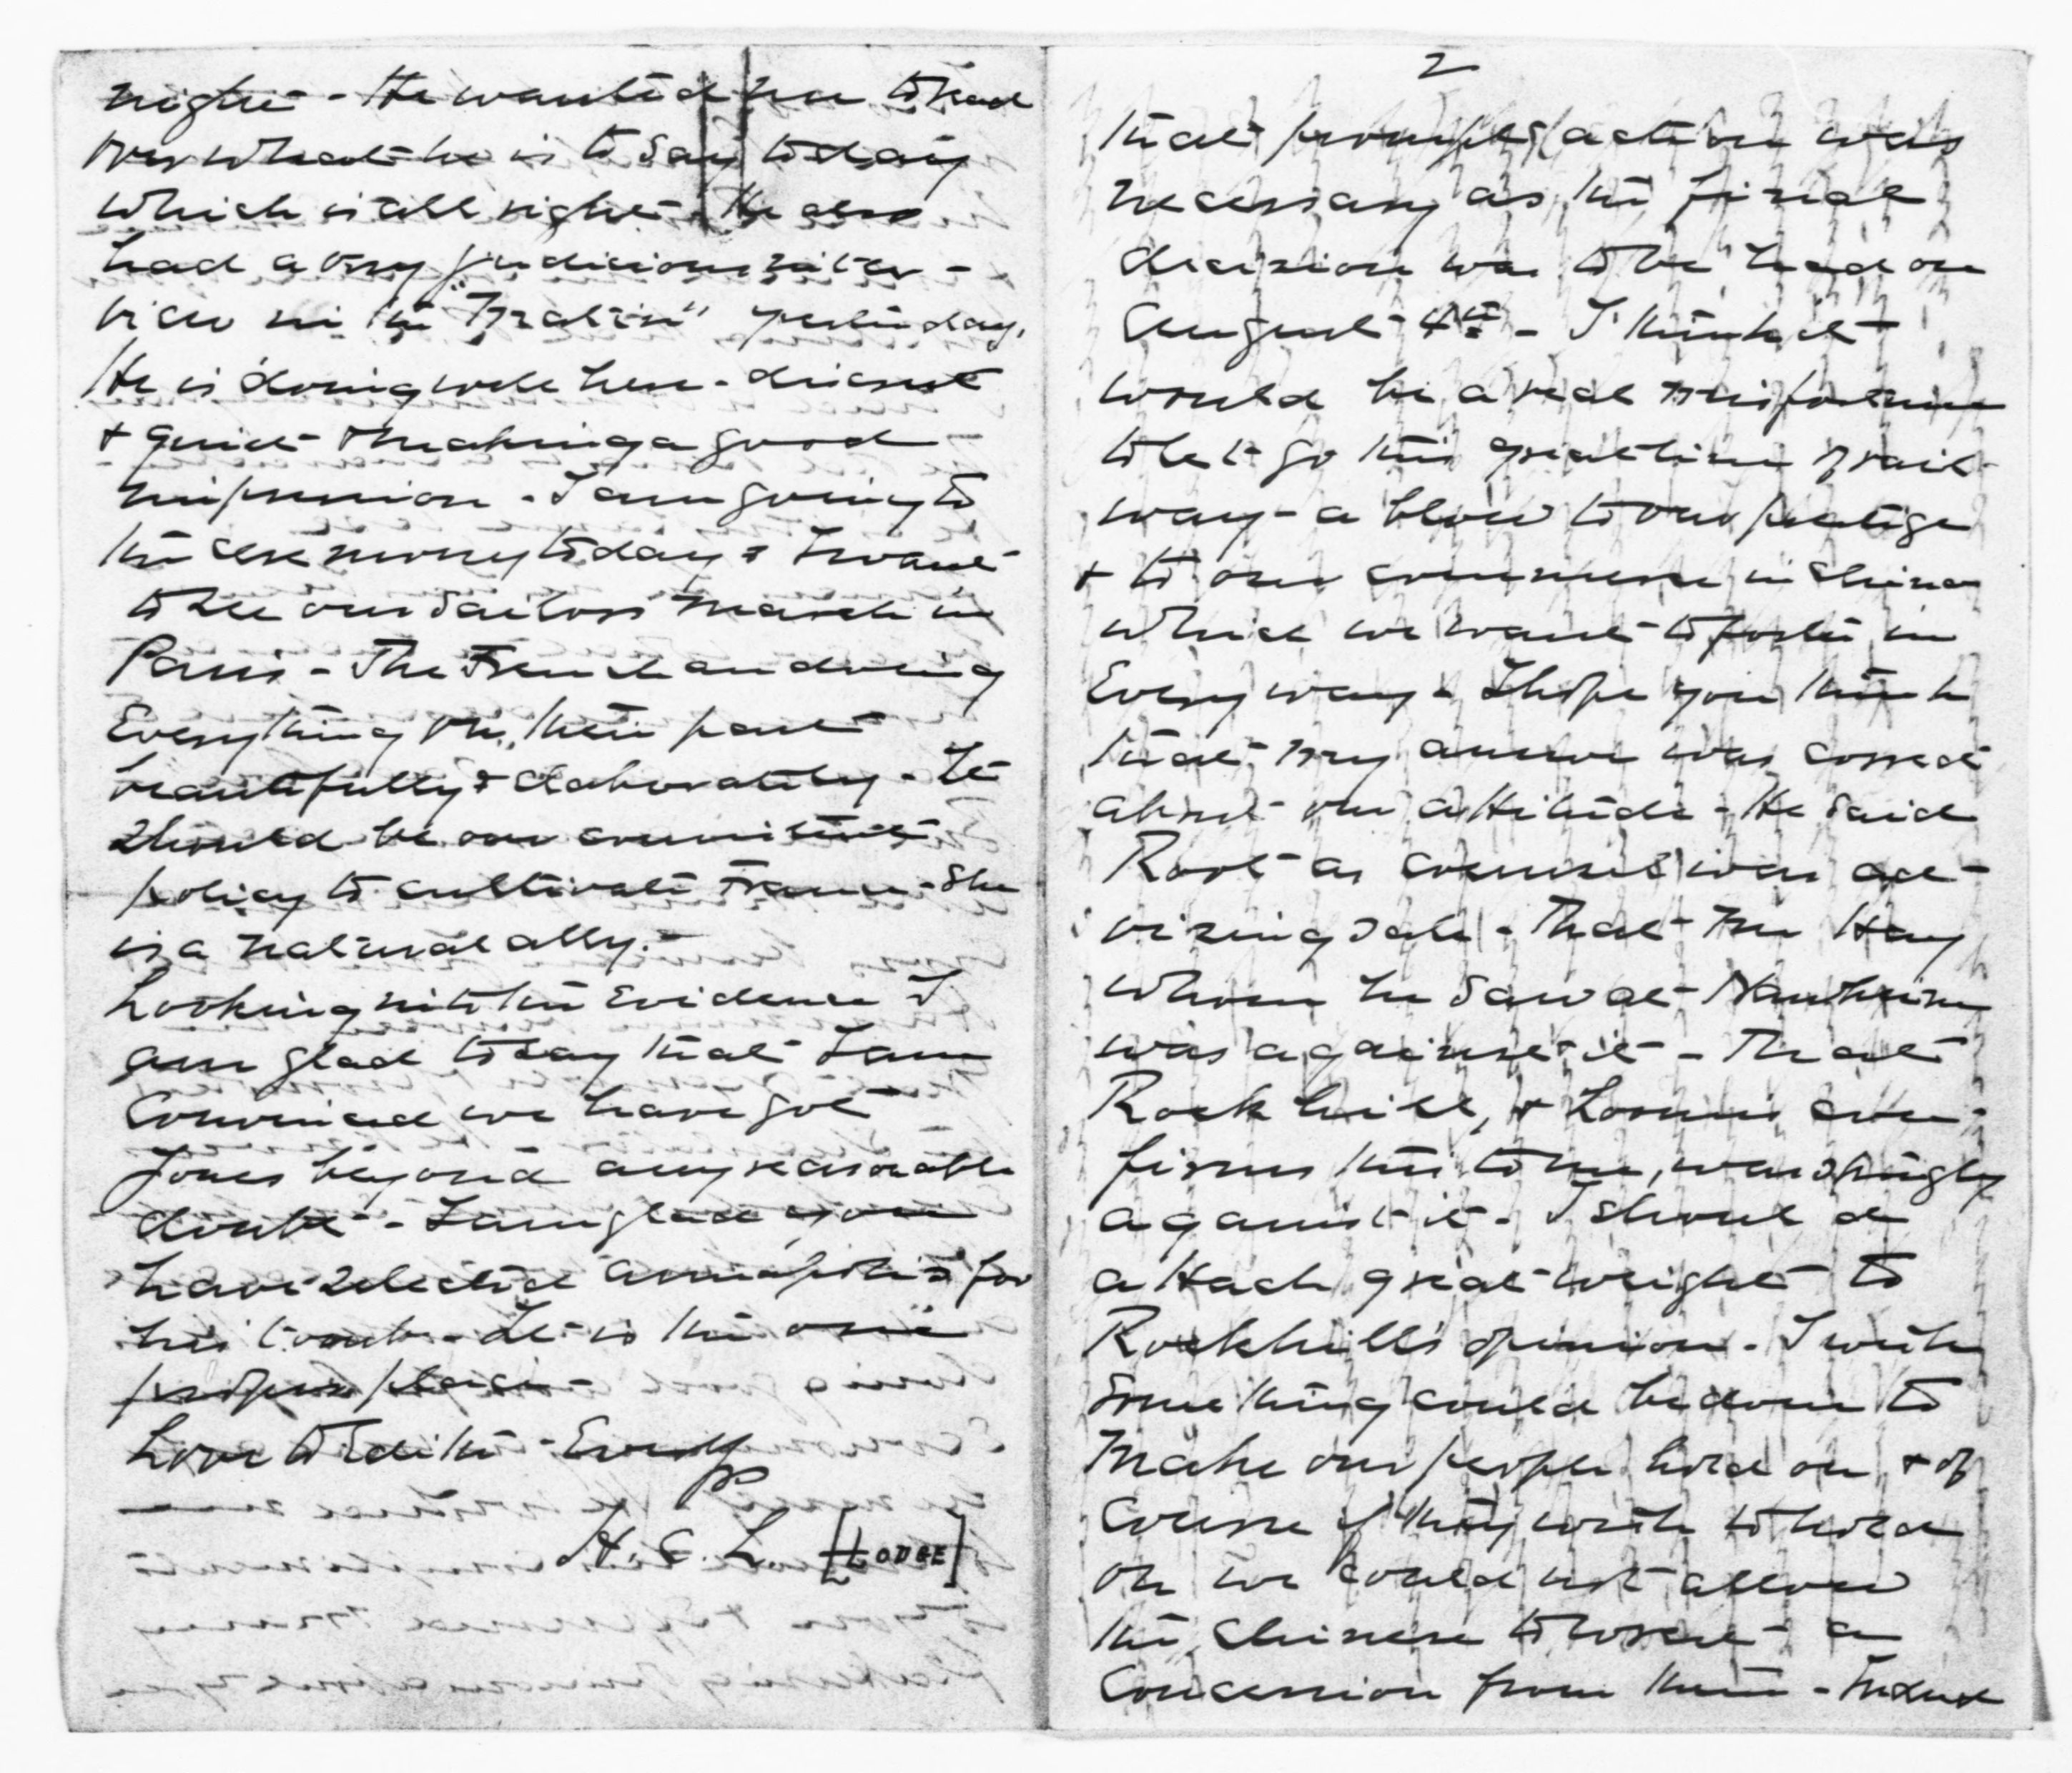 night - He wanted me to read
over what he is to say today
which is all right. He also
had a very judicious inter-
view in the "Matin" yesterday.
He is doing well here - discreet
& quiet & making a good
impression - I am going to
the ceremony today & I want
to see our sailors march in
Paris - The French are doing
Everything on their part
beautifully & elaborately - It
should be our consistent
policy to cultivate France - She
is a natural ally.
Looking into the Evidence I
am glad today that I am
Convinced we have got
Jones beyond any reasonable
doubt - I am glad you
have selected Annapolis for
his tomb - It is the one
proper place -
Love to Edith - Ever yrs
H. C. L. [LODGE]
2
that prompt action was
necessary as the final
decision was to be had on
August 4th - I think it
would be a real misfortune
to let go this great line of rail-
way - a blow to our prestige
& to our commerce in China
which we want to foster in
Every way - I hope you think
that my answer was correct
about our attitude - He said
Root as counsel was ad-
vising sale - That Mr Hay
whom he saw at Nauheim
was against it - That
Rockhill, & Loomis con-
firms this to me, was strongly
against it - I should
attach great weight to
Rockhill's opinion - I wish
Something could be done to
Make our people hold on & of
Course if they wish to hold
on we could not allow
the Chinese to wrest a
Concession from them - Indeed